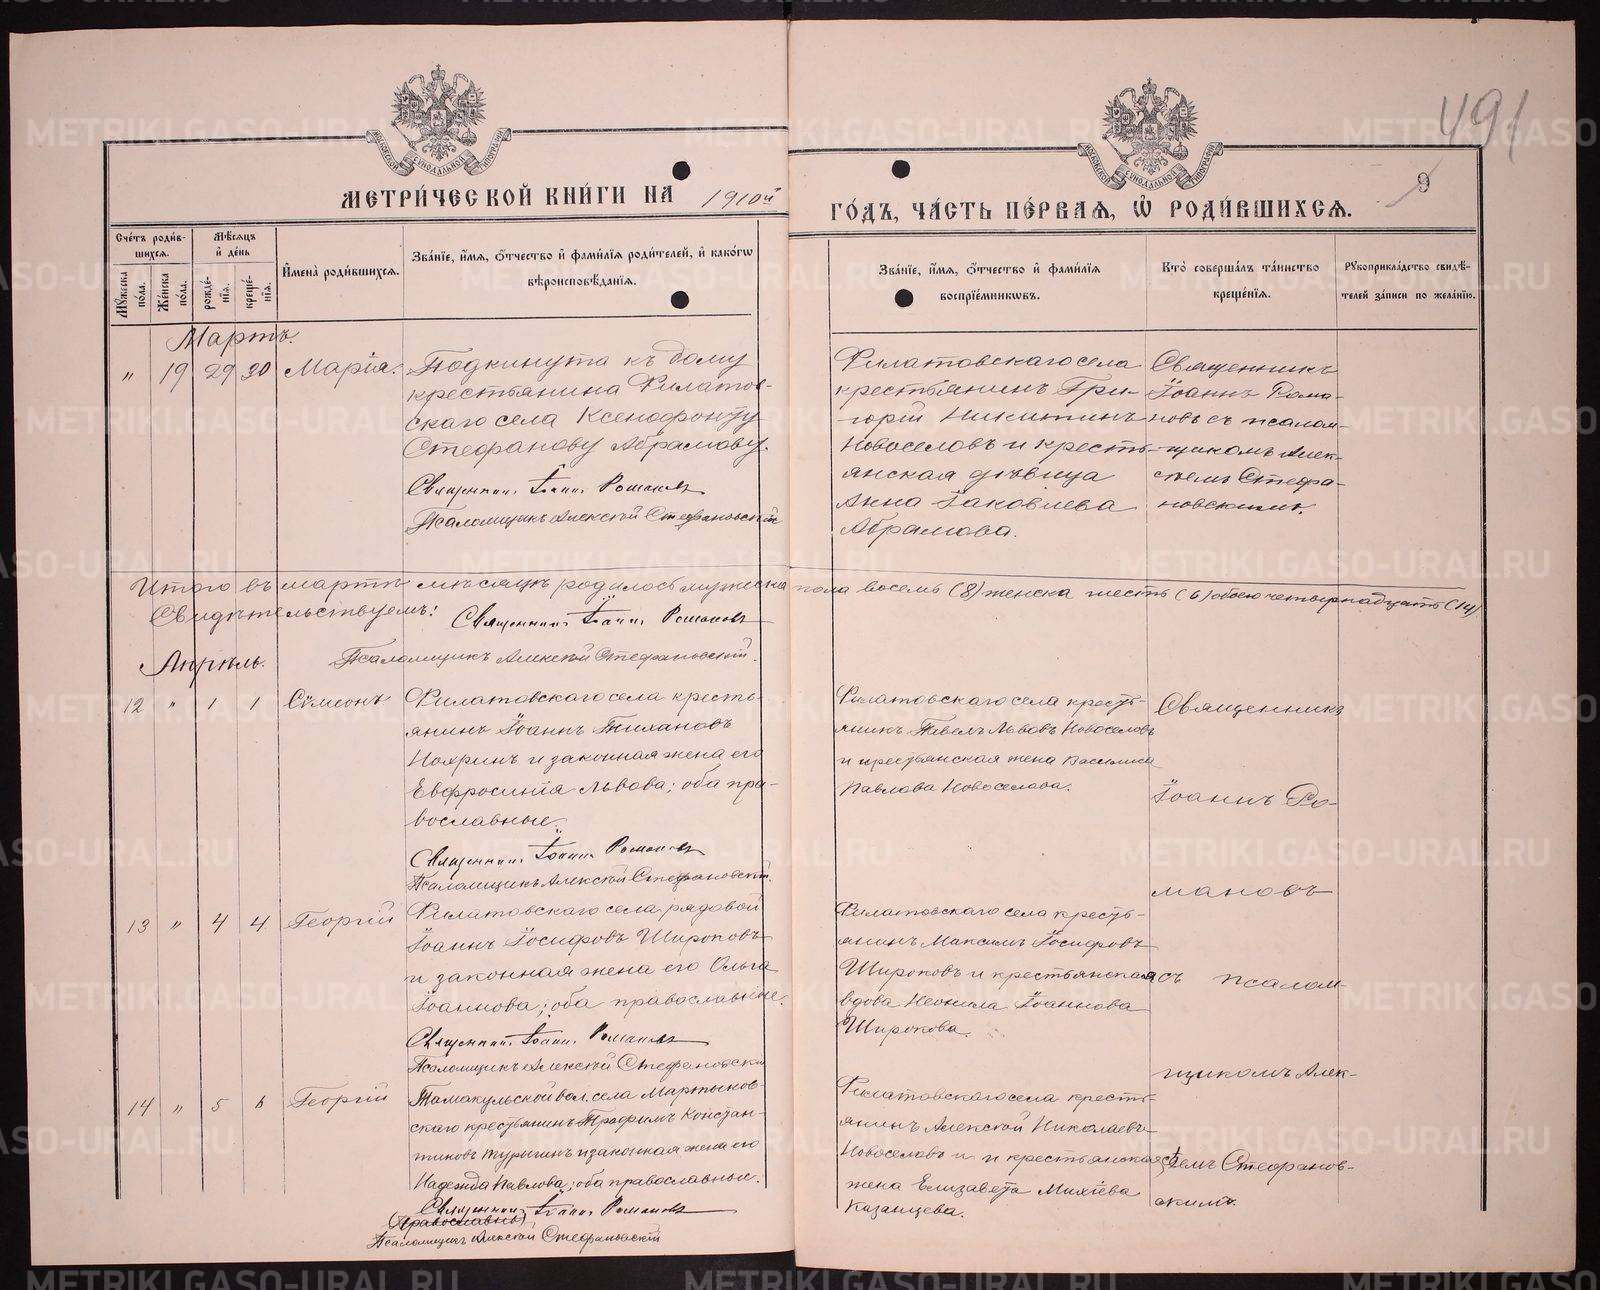 491
9
МЕТРИ́ЧЕСКОЙ КНИ́ГИ НА 1910й
ГО́ДЪ, ЧА́СТЬ ПЕ́РВАЯ, Ѡ҆ РОДИ́ВШИХСЯ.
Сче́тъ роди́в-
шихся.
Мꙋ́жеска
по́ла.
Же́нска
по́ла.
Мѣ́сяцъ
и҆ де́нь
рожде́-
нїѧ.
креще́-
нїѧ.
И҆мена̀ роди́вшихся.
Зва́нїе, и҆́мя, ѻ҆́тчество и҆ фами́лїя роди́телей, и҆ како́гѡ
вѣроисповѣ́данїя.
Зва́нїе, и҆́мя, ѻ҆́тчество и҆ фами́лїя
воспрїе́мникѡвъ.
Кто̀ соверша́лъ та́инство
креще́нїя.
Рꙋкоприкла́дство свидѣ́-
телей за́писи по жела́нїю.
Мартъ.
„ 19 29 30 Марія.
Подкинута къ дому
крестьянина Филатов-
скаго села Ксенофонту
Стефанову Абрамову.
Священник Іоанн Романовъ
Псаломщикъ Алексѣй Стефановскій
Филатовскаго села
крестьянинъ Гри-
горій Никитинъ
Новоселовъ и кресть-
янская дѣвица
Анна Іаковлева
Абрамова.
Священникъ
Іоаннъ Рома-
новъ съ псалом-
щикомъ Алек-
сѣемъ Стефа-
новскимъ.
Итого въ мартѣ мѣсяцѣ родилось мужеска пола восемь (8) женска шесть (6) обоего четырнадцать (14)
Свидѣтельствуемъ: Священник Іоанн Романовъ
Псаломщикъ Алексѣй Стефановскій.
Апрѣль.
12 „ 1 1 Сѵмеонъ
Филатовскаго села кресть-
янинъ Іоаннъ Тихановъ
Нохринъ и законная жена его
Евфросинія Львова; оба пра-
вославные.
Священник Іоанн Романовъ
Псаломщикъ Алексѣй Стефановскій.
Филатовскаго села кресть-
янинъ Павелъ Львовъ Новоселовъ
и крестьянская жена Василиса
Павлова Новоселова.
Священникъ
Іоаннъ Ро-
мановъ
съ псалом-
щикомъ Алек-
сѣемъ Стефанов-
скимъ.
13 „ 4 4 Георгій
Филатовскаго села рядовой
Іоаннъ Іосифовъ Широковъ
и законная жена его Ольга
Іоаннова; оба православные.
Священник Іоанн Романовъ
Псаломщикъ Алексѣй Стефановскій
Филатовскаго села кресть-
янинъ Максимъ Іосифовъ
Широковъ и крестьянская
вдова Неонила Іоаннова
Широкова.
14 „ 5 6 Георгій
Тамакульской вол. села Мартынов-
скаго крестьянинъ Трофимъ Констан-
тиновъ Турыгинъ и законная жена его
Надежда Павлова; оба православные.
Священник Іоанн Романовъ
(православны)
Псаломщикъ Алексѣй Стефановскій
Филатовскаго села кресть-
янинъ Алексѣй Николаевъ
Новоселовъ и крестьянская
жена Елизавета Михѣева
Казанцева.
METRIKI.GASO-URAL.RU